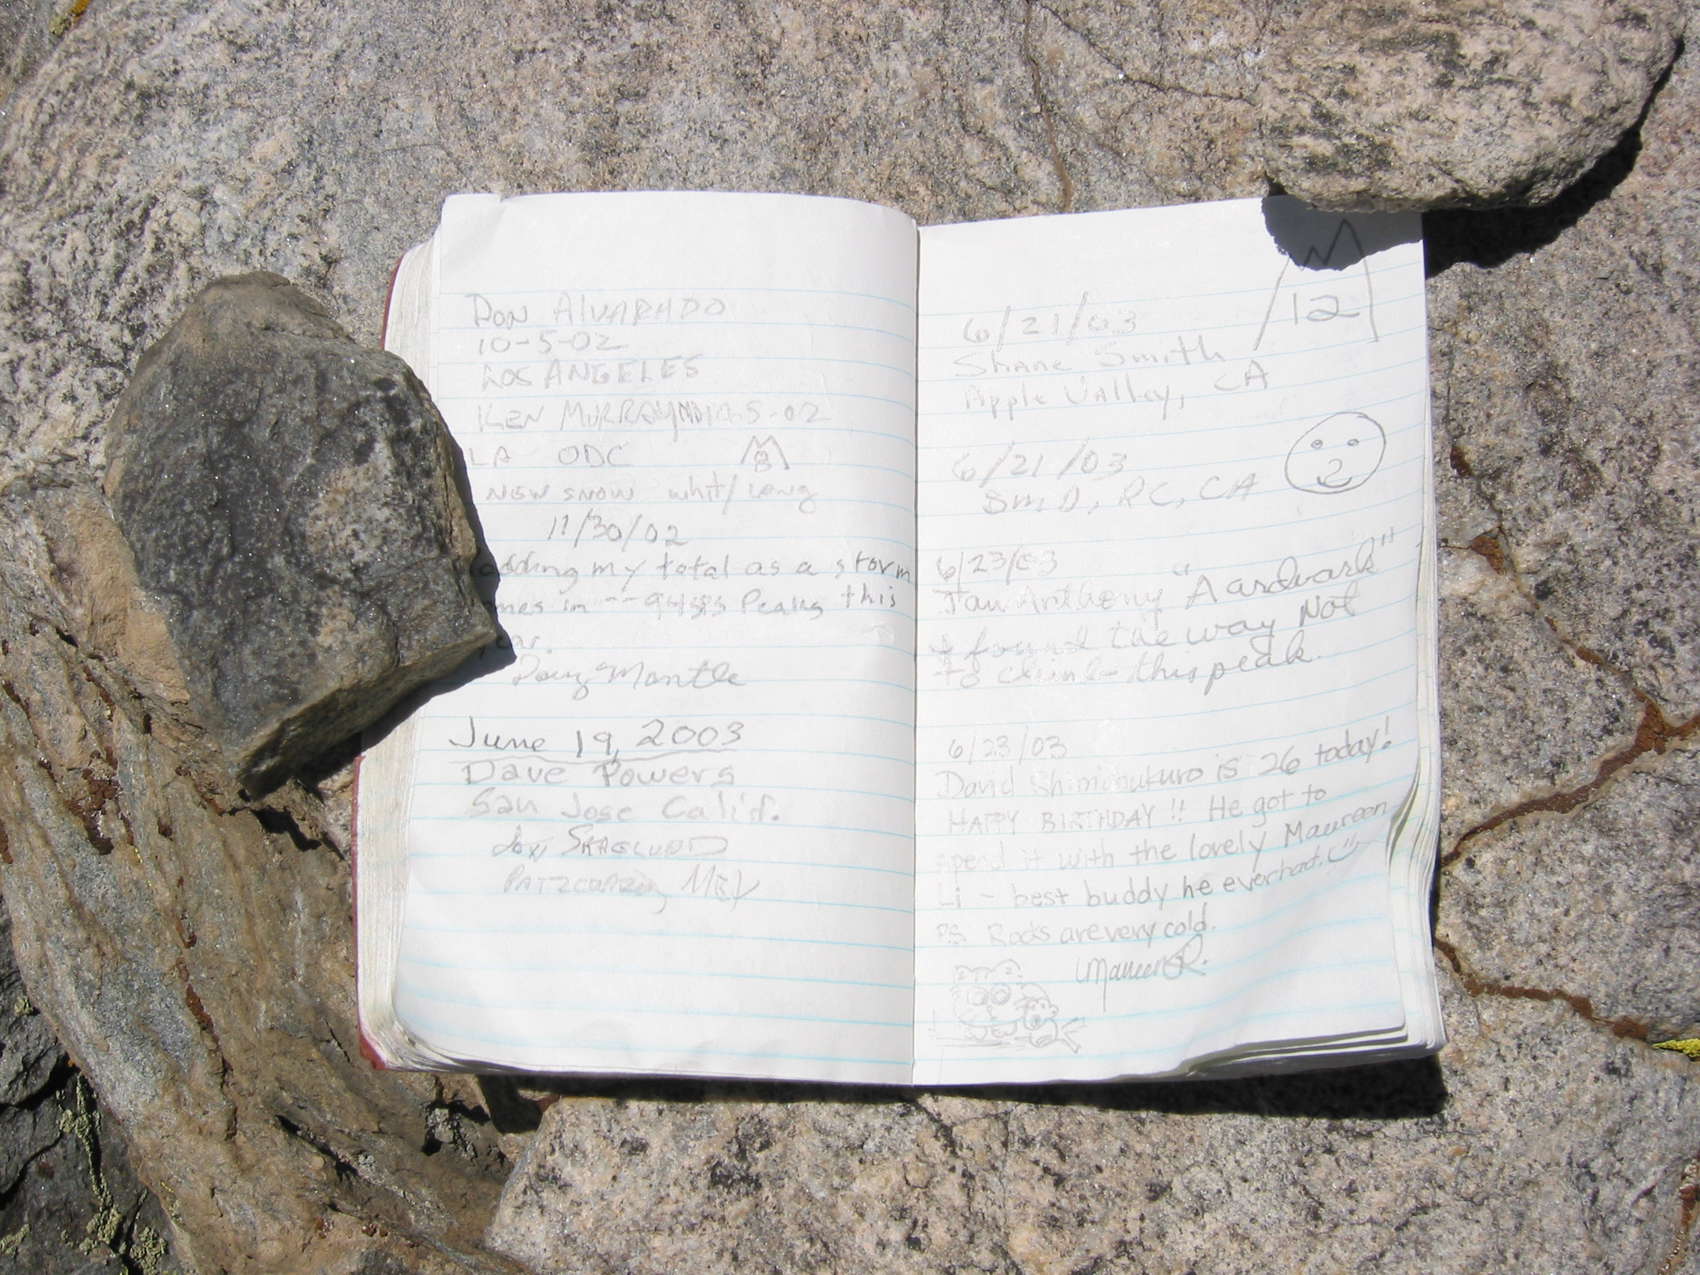 DON ALVARADO
10-5-02
LOS ANGELES
KEN MURRAY 10-5-02
LA ODC
NEW SNOW
11/30/02
adding my total as a storm
in -- Peaks this
Doug Mantle
June 19, 2003
Dave Powers
San Jose Calif.
SKAGLUND
MEX
12
6/21/03
Shane Smith
Apple Valley, CA
6/21/03
BMD, RC, CA
6/23/03
Anthony "Aardvark"
I found the way Not
To climb this peak.
6/23/03
David Shimabukuro is 26 today!
HAPPY BIRTHDAY!! He got to
spend it with the lovely Maureen
Li - best buddy he ever had.
PS. Rocks are very cold.
Maureen